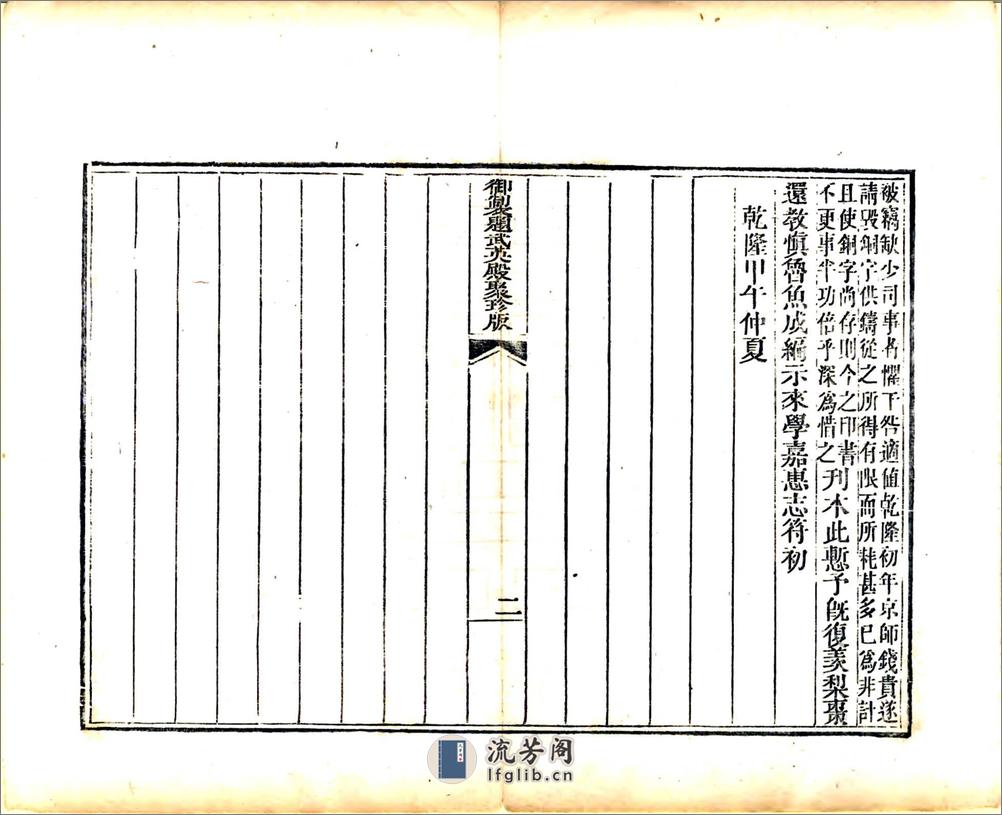 被竊缺少司事者懼干咎適值乾隆初年京師錢貴遂
請毀銅字供鑄從之所得有限而所耗甚多已爲非計
且使銅字尚存則今之印書
不更事半功倍乎深爲惜之刋木此慙予旣復羨梨棗
還教愼魯魚成編示來學嘉惠志符初
乾隆甲午仲夏
御製題武英殿聚珍版
二
流芳阁
lfglib.cn